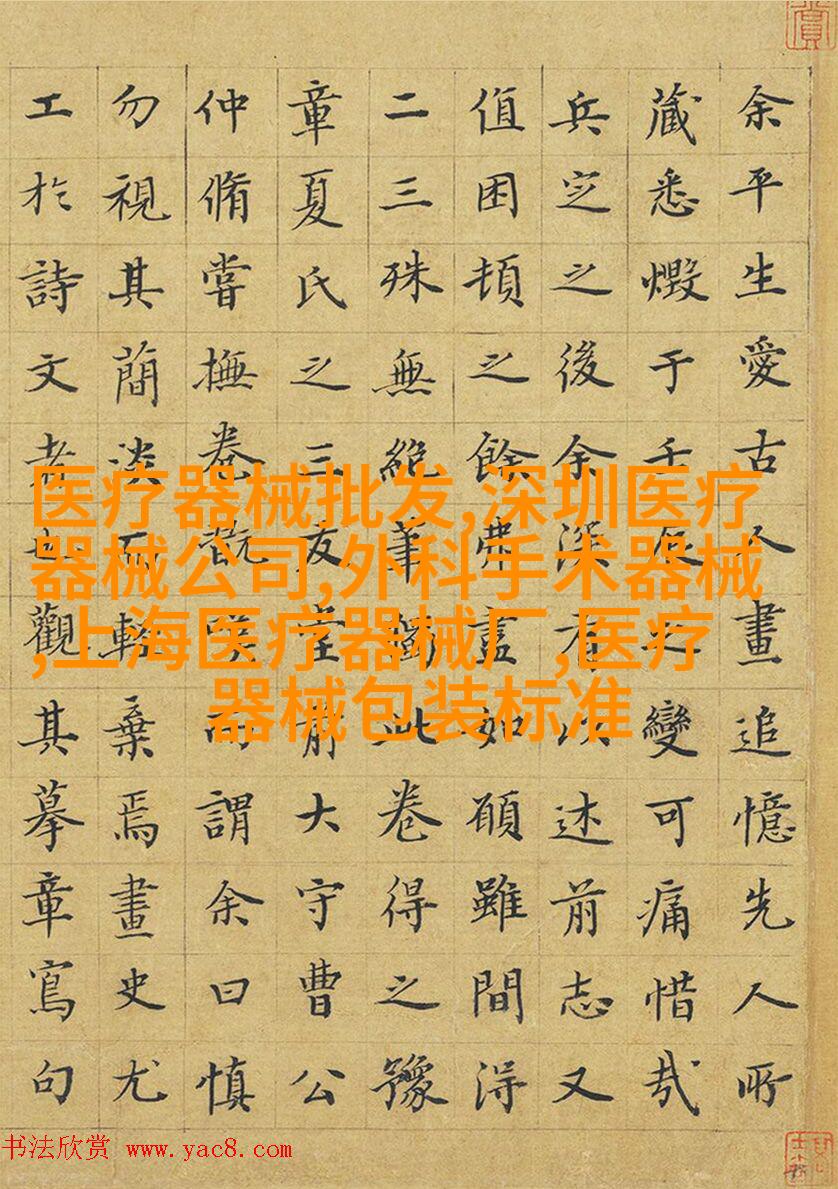 余平生愛古人畫追憶先人所
藏悉燬于壬辰之變可痛惜哉
兵定之後余深有以述前志又
值困頓之餘弗盡如願雖間得
二三殊無絶筆此卷得之豫
章夏氏之三友堂前大守曹公
仲脩嘗撫卷翫嘆而謂余曰慎
勿視其簡淡而輕棄焉畫史尤
工於詩文者也觀其摹章寫句
医疗器械批发,深圳医疗
器械公司,外科手术器械
,上海医疗器械厂,医疗
器械包装标准
书法欣赏 www.yac8.com